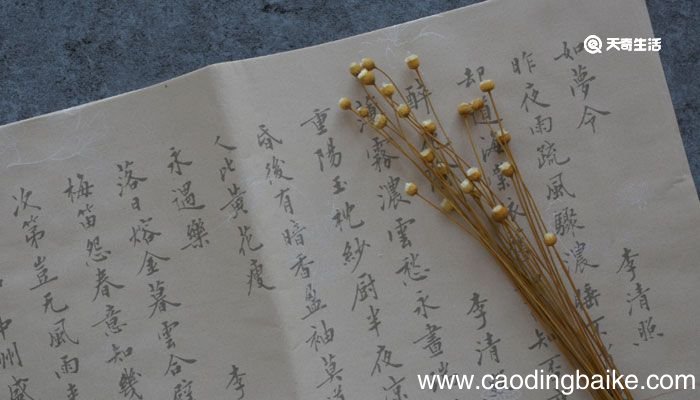 天奇生活
如夢令 李清照
昨夜雨疏風驟濃睡不
却道海棠依 知否
醉 李清
薄霧濃雲愁永晝
重陽玉枕紗厨半夜涼
昏後有暗香盈袖莫
人比黃花瘦
永遇樂 李
落日熔金暮雲合璧
梅笛怨春意知幾
次第豈无風雨
中州盛
www.caodingbaike.com